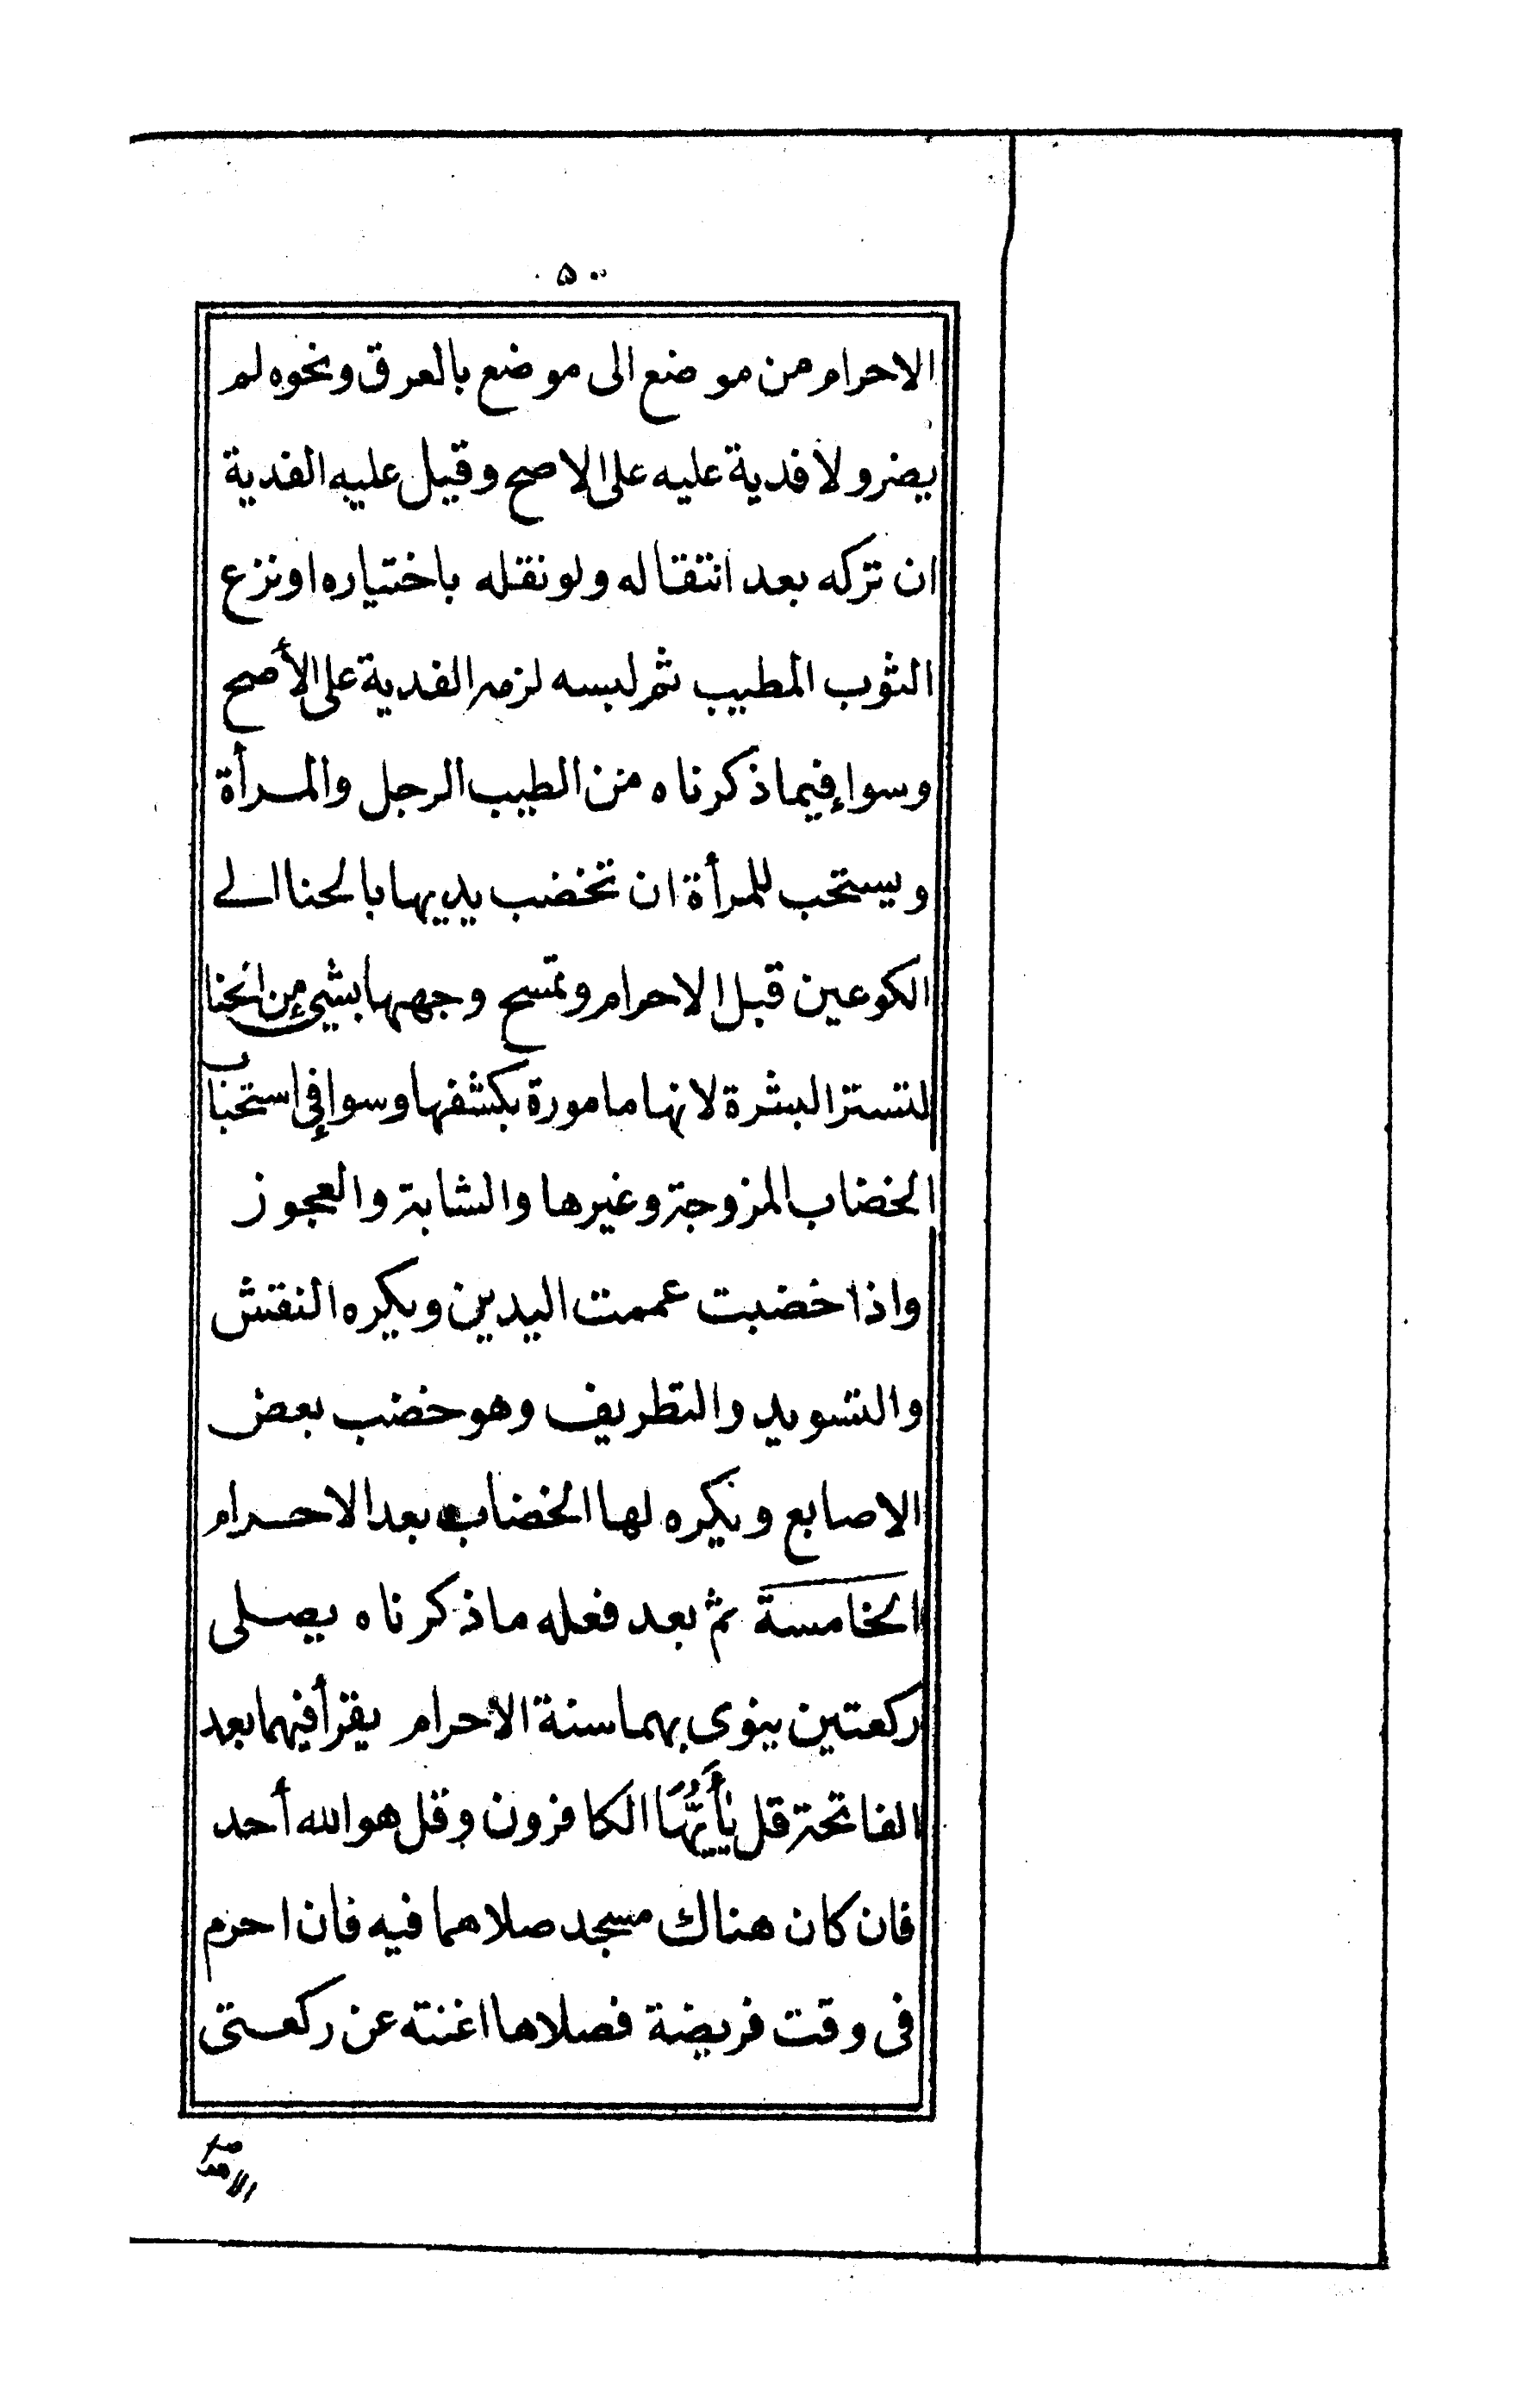 ٥٠
الاحرام من موضع الى موضع بالعرق ونحوه لم
يضر ولا فدية عليه على الاصح وقيل عليه الفدية
ان تركه بعد انتقاله ولو نقله باختياره او نزع
الثوب المطيب ثم لبسه لزمه الفدية على الأصح
وسواء فيما ذكرناه من الطيب الرجل والمرأة
ويستحب للمرأة ان تخضب يديها بالحنا الى
الكوعين قبل الاحرام وتمسح وجهها بشيء من الحنا
لتستر البشرة لانها مامورة بكشفها وسواء في استحباب
الخضاب المزوجة وغيرها والشابة والعجوز
واذا خضبت عممت اليدين ويكره النقش
والتسويد والتطريف وهو خضب بعض
الاصابع ويكره لها الخضاب بعد الاحرام
الخامسة ثم بعد فعله ما ذكرناه يصلى
ركعتين ينوى بهما سنة الاحرام يقرأ فيهما بعد
الفاتحة قل يأَيُّهَا الكافرون وقل هو الله أحد
فان كان هناك مسجد صلاهما فيه فان احرم
فى وقت فريضة فصلاها اغنته عن ركعتى